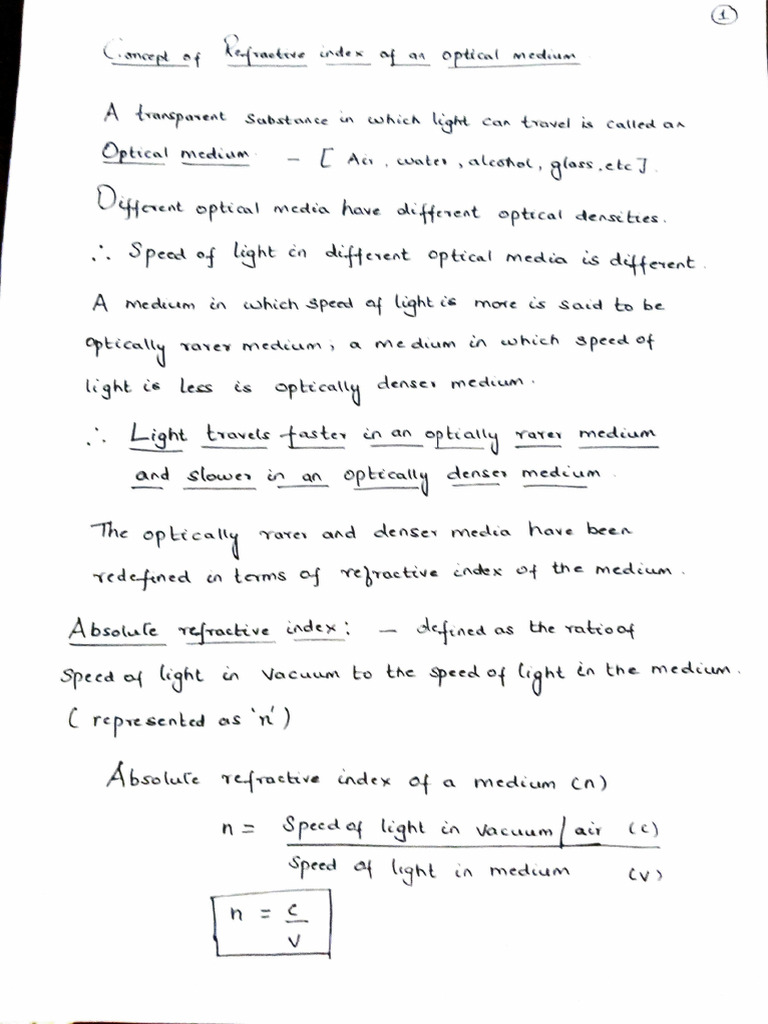 1
Concept of Refractive index of an optical medium
A transparent substance in which light can travel is called an
Optical medium. - [ Air, water, alcohol, glass, etc].
Different optical media have different optical densities.
∴ Speed of light in different optical media is different.
A medium in which speed of light is more is said to be
optically rarer medium; a medium in which speed of
light is less is optically denser medium.
∴ Light travels faster in an optially rarer medium
and slower in an optically denser medium.
The optically rarer and denser media have been
redefined in terms of refractive index of the medium.
Absolute refractive index: - defined as the ratio of
speed of light in vacuum to the speed of light in the medium.
( represented as 'n')
Absolute refractive index of a medium (n)
n = Speed of light in vacuum/air (c)
Speed of light in medium (v)
n = c
v